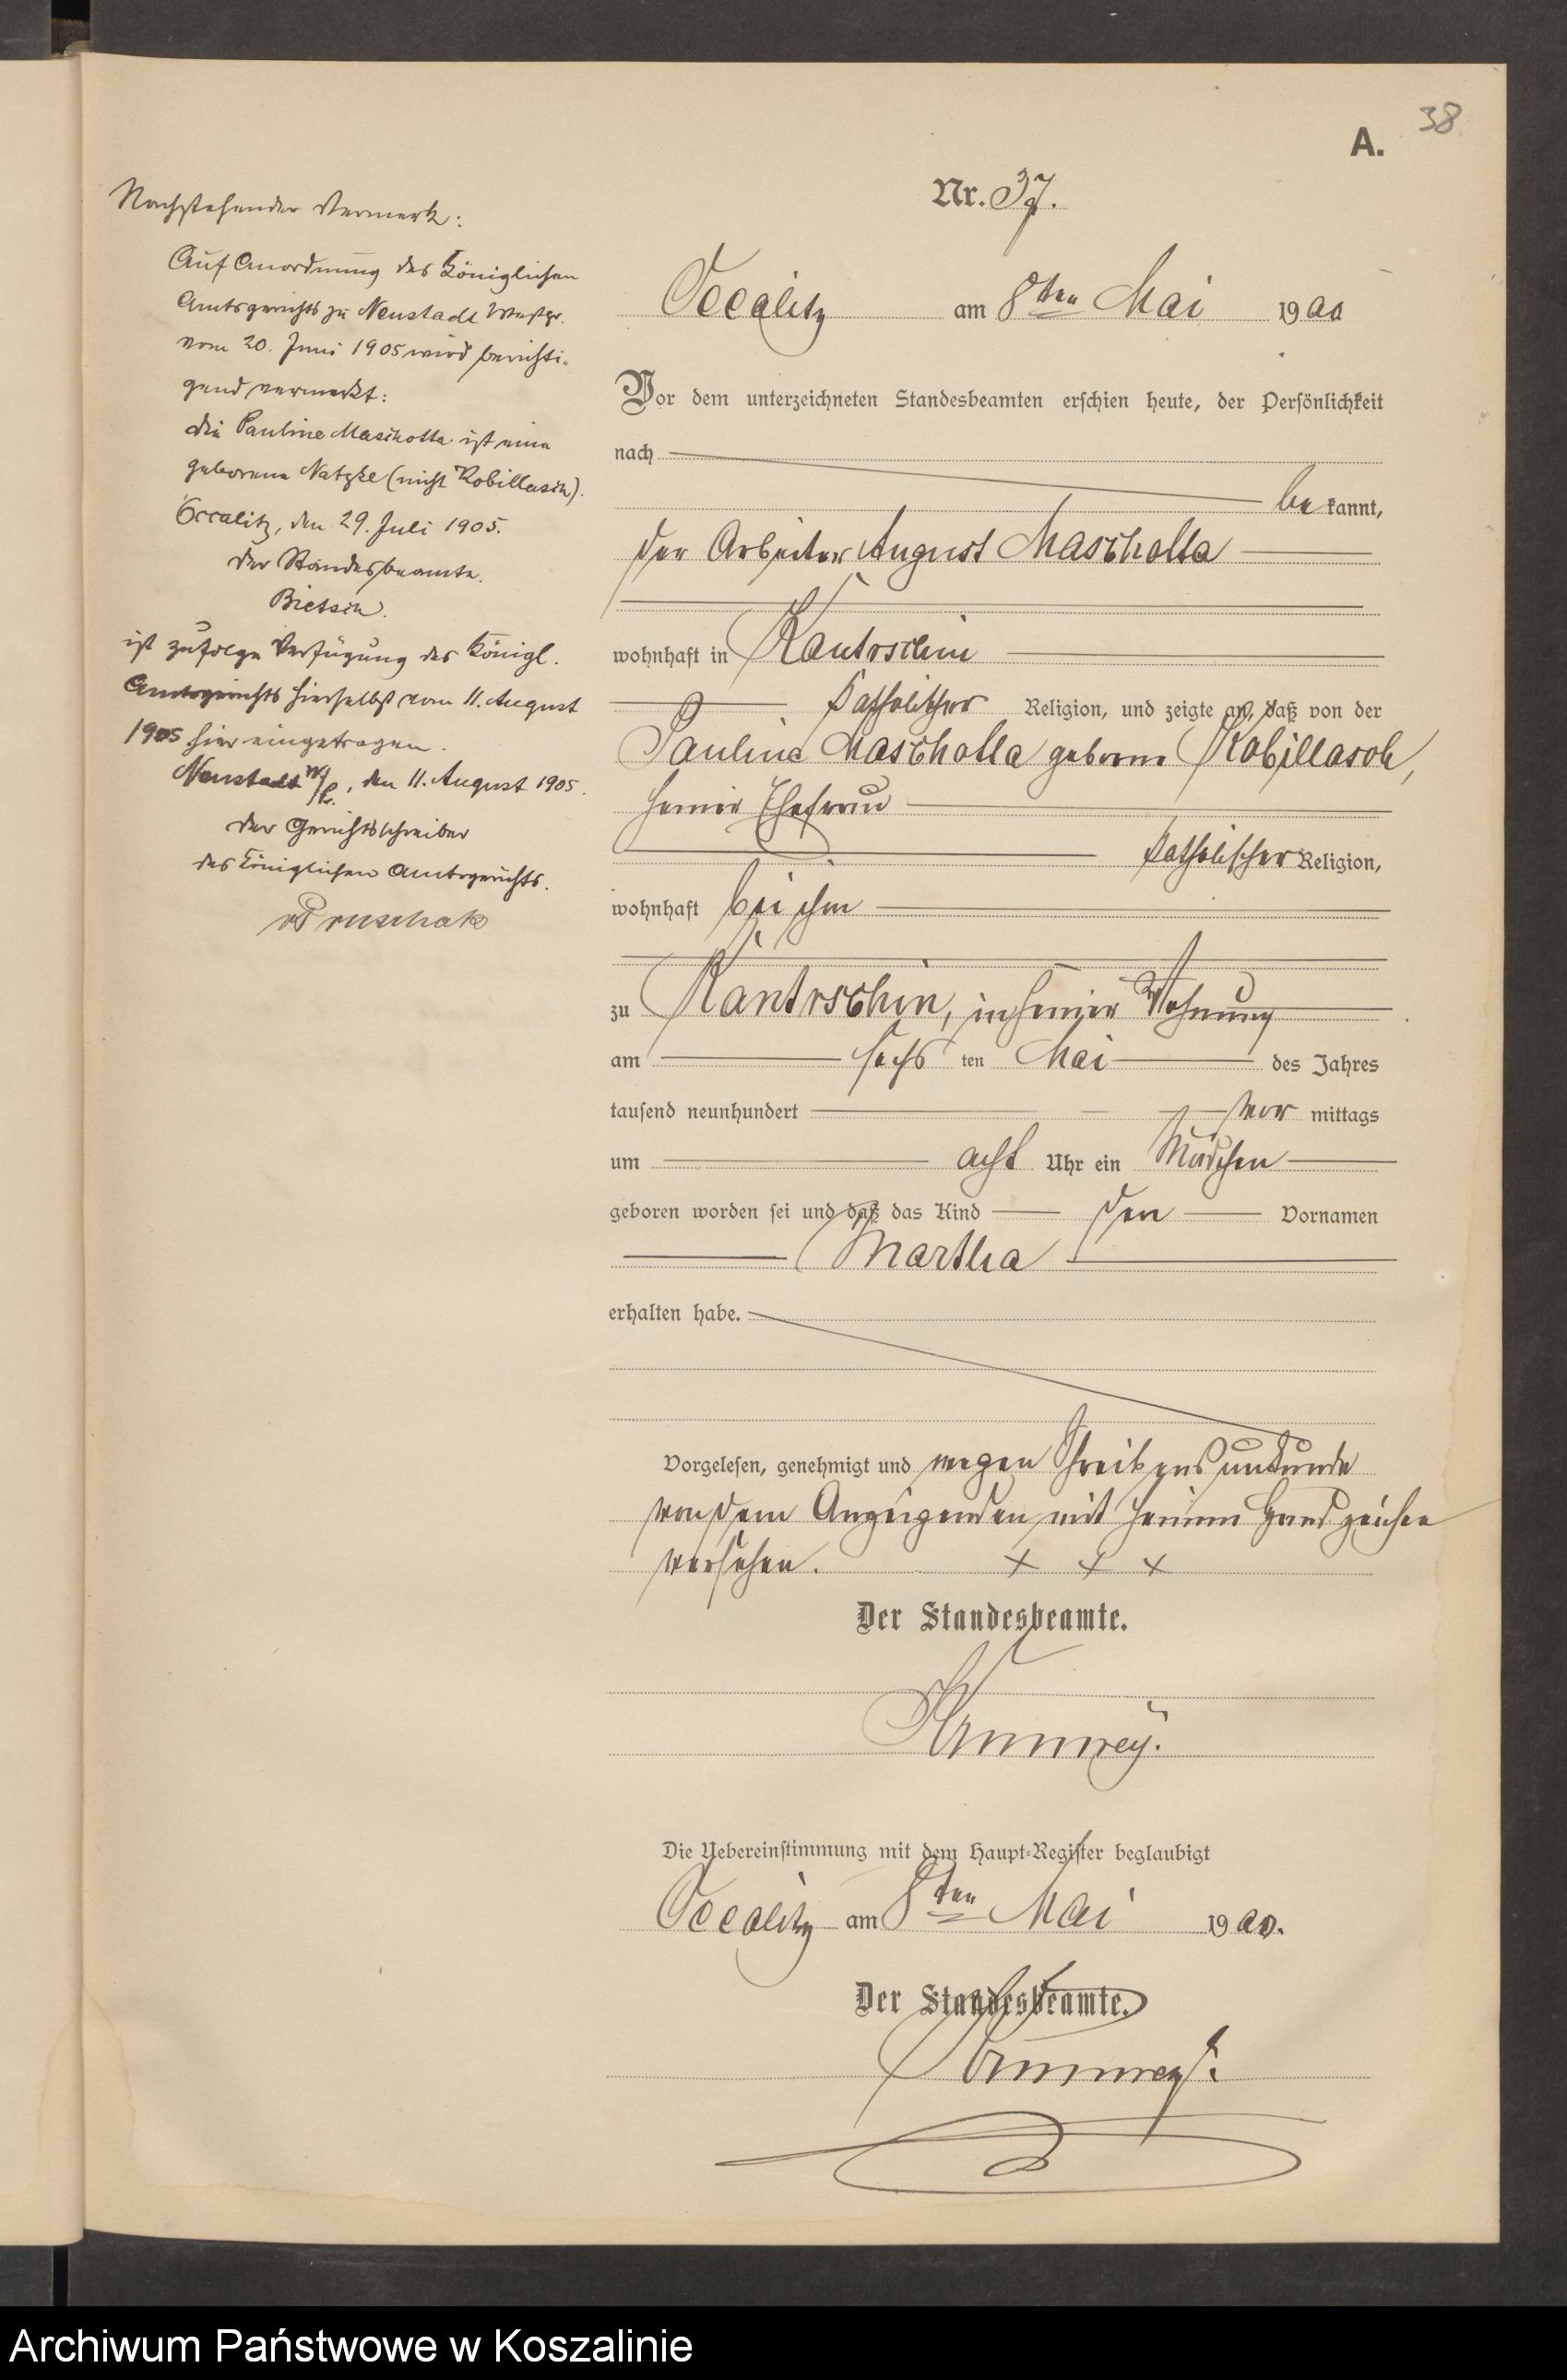 38
A.
Nr. 37.
Occalitz am 8ten Mai 1900
Vor dem unterzeichneten Standesbeamten erschien heute, der Persönlichkeit
nach
be kannt,
der Arbeiter August Maschotta
wohnhaft in Kantrschin
katholischer Religion, und zeigte an, daß von der
Pauline Maschotta geborne Kobillasch,
seiner Ehefrau
katholischer Religion,
wohnhaft bei ihm
zu Kantrschin, in seiner Wohnung
am sechs ten Mai des Jahres
tausend neunhundert vor mittags
um acht Uhr ein Mädchen
geboren worden sei und daß das Kind den Vornamen
Martha
erhalten habe.
Vorgelesen, genehmigt und wegen Schreibensunkunde
von dem Anzeigenden mit seinem Handzeichen
versehen. + + +
Der Standesbeamte.
Die Uebereinstimmung mit dem Haupt-Register beglaubigt
Occalitz am 8ten Mai 1900.
Der Standesbeamte.
Nachstehender Vermerk:
Auf Anordnung des Königlichen
Amtsgerichts zu Neustadt Westpr.
vom 20. Juni 1905 wird berichti-
gend vermerkt:
die Pauline Maschotta ist eine
geborene Natzke (nicht Kobillasch).
Occalitz, den 29. Juli 1905.
Der Standesbeamte.
Bietsch.
ist zufolge Verfügung des Königl.
Amtsgerichts hierselbst vom 11. August
1905 hier eingetragen.
Neustadt W/Pr., den 11. August 1905.
Der Gerichtsschreiber
des Königlichen Amtsgerichts.
Archiwum Państwowe w Koszalinie